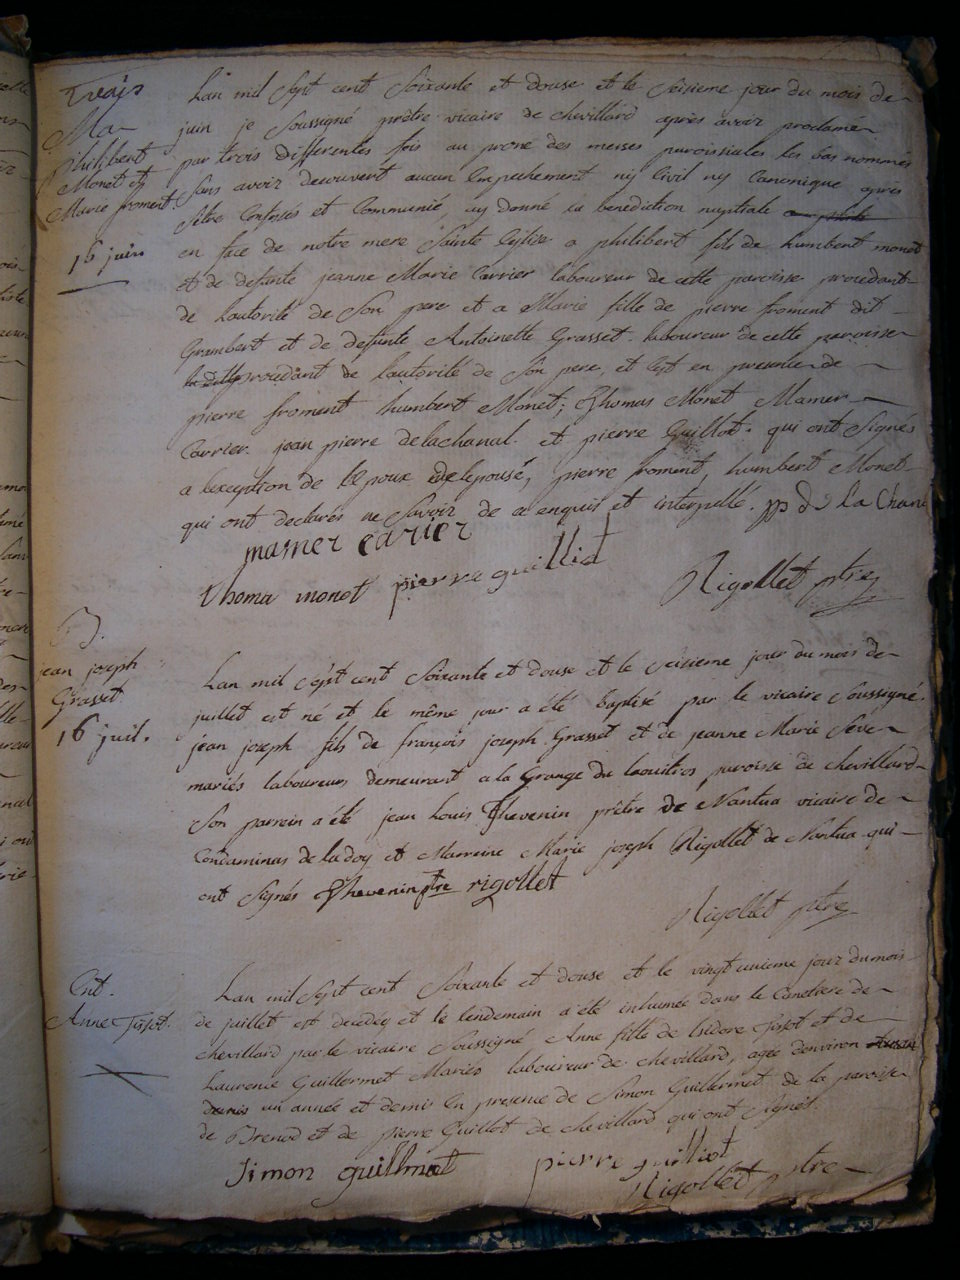 Ma
philibert
Monet et
Marie froment.
16 juin
Lan mil sept cent Soixante et douse et le Seisieme jour du mois de
juin je Soussigné prêtre vicaire de chevillard après avoir proclamé
par trois differentes fois au prone des messes paroissiales les bas nommés
Sans avoir decouvert aucun Empechement ny Civil ny Canonique après
sêtre Confessés et Communié, ay donné la benediction nuptiale
en face de notre mere Sainte Eglise a philibert fils de humbert monet
et de defunte jeanne Marie Carrier laboureur de cette paroisse procedant
de lautorité de Son pere et a Marie fille de pierre froment dit
Grambert et de defunte Antoinette Grasset laboureur de cette paroisse
procedant de lautorité de Son pere, et cest en presence de
pierre froment humbert Monet; Thomas Monet Mamer
Carrier. jean pierre delachanal. et pierre Guillot. qui ont Signés
a lexception de lepoux et de lepouse, pierre froment humbert Monet
qui ont declarés ne Savoir de ce enquis et interpellé. pp de La Chanal
mamer carier
Thoma monet pierre guilliot
Rigollet ptre
B.
jean joseph
Grasset
16 juil.
Lan mil Sept cent Soixante et douse et le Seisieme jour du mois de
juillet est né et le même jour a été baptisé par le vicaire Soussigné.
jean joseph fils de françois joseph Grasset et de jeanne Marie Seve
mariés laboureurs demeurant a la Grange du paroisse de chevillard
Son parrein a été jean Louis Thevenin prêtre de Nantua vicaire de
Condaminas de la doy et Marreine Marie joseph Rigollet de Nantua qui
ont Signés Thevenin ptre rigollet
Rigollet ptre
Ent.
Anne Tissot.
Lan mil Sept cent Soixante et douse et le vingt unieme jour du mois
de juillet est decedée et le lendemain a été inhumée dans le Cimetiere de
chevillard par le vicaire Soussigné Anne fille de Isidore Tissot et de
Laurence Guillermet Mariés laboureur de chevillard, agée denviron
un année et demis En presence de Simon Guillermet de la paroisse
de Brenod et de pierre Guillot de chevillard qui ont Signés.
Simon guillmet pierre guilliot
Rigollet ptre